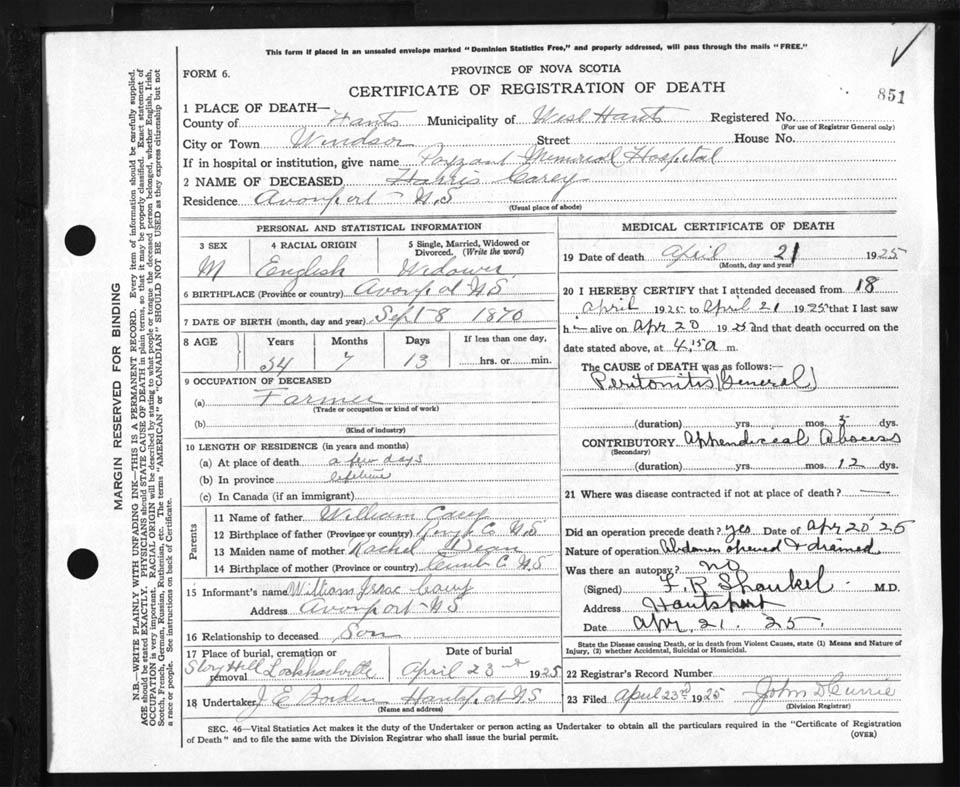 This form if placed in an unsealed envelope marked "Dominion Statistics Free," and properly addressed, will pass through the mails "FREE."
FORM 6.
PROVINCE OF NOVA SCOTIA
CERTIFICATE OF REGISTRATION OF DEATH
851
1 PLACE OF DEATH—
County of Hants Municipality of West Hants Registered No.
(For use of Registrar General only)
City or Town Windsor Street House No.
If in hospital or institution, give name Payzant Memorial Hospital
2 NAME OF DECEASED Harris Carey
Residence Avonport N.S
(Usual place of abode)
PERSONAL AND STATISTICAL INFORMATION
3 SEX 4 RACIAL ORIGIN 5 Single, Married, Widowed or Divorced. (Write the word)
M English Widower
6 BIRTHPLACE (Province or country) Avonport N.S
7 DATE OF BIRTH (month, day and year) Sept 8 1870
8 AGE Years Months Days If less than one day,
54 7 13 hrs. or min.
9 OCCUPATION OF DECEASED
(a) Farmer
(Trade or occupation or kind of work)
(b)
(Kind of industry)
10 LENGTH OF RESIDENCE (in years and months)
(a) At place of death a few days
(b) In province lifetime
(c) In Canada (if an immigrant)
Parents
11 Name of father William Carey
12 Birthplace of father (Province or country) Kings Co. N.S
13 Maiden name of mother Rachel
14 Birthplace of mother (Province or country) Cumb C. N.S
15 Informant's name William Isaac Carey
Address Avonport N.S
16 Relationship to deceased Son
17 Place of burial, cremation or removal Date of burial
Hill Lockhartville April 23rd 1925
18 Undertaker J. E Borden Hantsport N.S
(Name and address)
MEDICAL CERTIFICATE OF DEATH
19 Date of death April 21 1925
(Month, day and year)
20 I HEREBY CERTIFY that I attended deceased from 18
April 1925 to April 21 1925 that I last saw
h alive on Apr 20 1925 and that death occurred on
the date stated above, at 4.15 a m.
The CAUSE of DEATH was as follows:—
Peritonitis (General)
(duration) yrs. mos. dys.
CONTRIBUTORY Appendiceal Abscess
(Secondary)
(duration) yrs. mos. 12 dys.
21 Where was disease contracted if not at place of death? —
Did an operation precede death? yes Date of Apr 20 '25
Nature of operation Abdomen opened & drained
Was there an autopsy? no
(Signed) F. R Shankel M.D.
Address Hantsport
Date Apr. 21. 25.
State the Disease causing Death, or in death from Violent Causes, state (1) Means and Nature of Injury, (2) whether Accidental, Suicidal or Homicidal.
22 Registrar's Record Number
23 Filed April 23rd 1925 John D Currie
(Division Registrar)
SEC. 46—Vital Statistics Act makes it the duty of the Undertaker or person acting as Undertaker to obtain all the particulars required in the "Certificate of Registration
of Death" and to file the same with the Division Registrar who shall issue the burial permit.
(OVER)
MARGIN RESERVED FOR BINDING
N.B.—WRITE PLAINLY WITH UNFADING INK—THIS IS A PERMANENT RECORD. Every item of information should be carefully supplied.
AGE should be stated EXACTLY. PHYSICIANS should STATE CAUSE OF DEATH in plain terms, so that it may be properly classified. Exact statement of
OCCUPATION is very important. RACIAL ORIGIN will be described by stating to what people or tongue the deceased person belonged, whether English, Irish,
Scotch, French, German, Russian, Ruthenian, etc. The terms "AMERICAN" or "CANADIAN" SHOULD NOT BE USED as they express citizenship but not
a race or people. See instructions on back of Certificate.